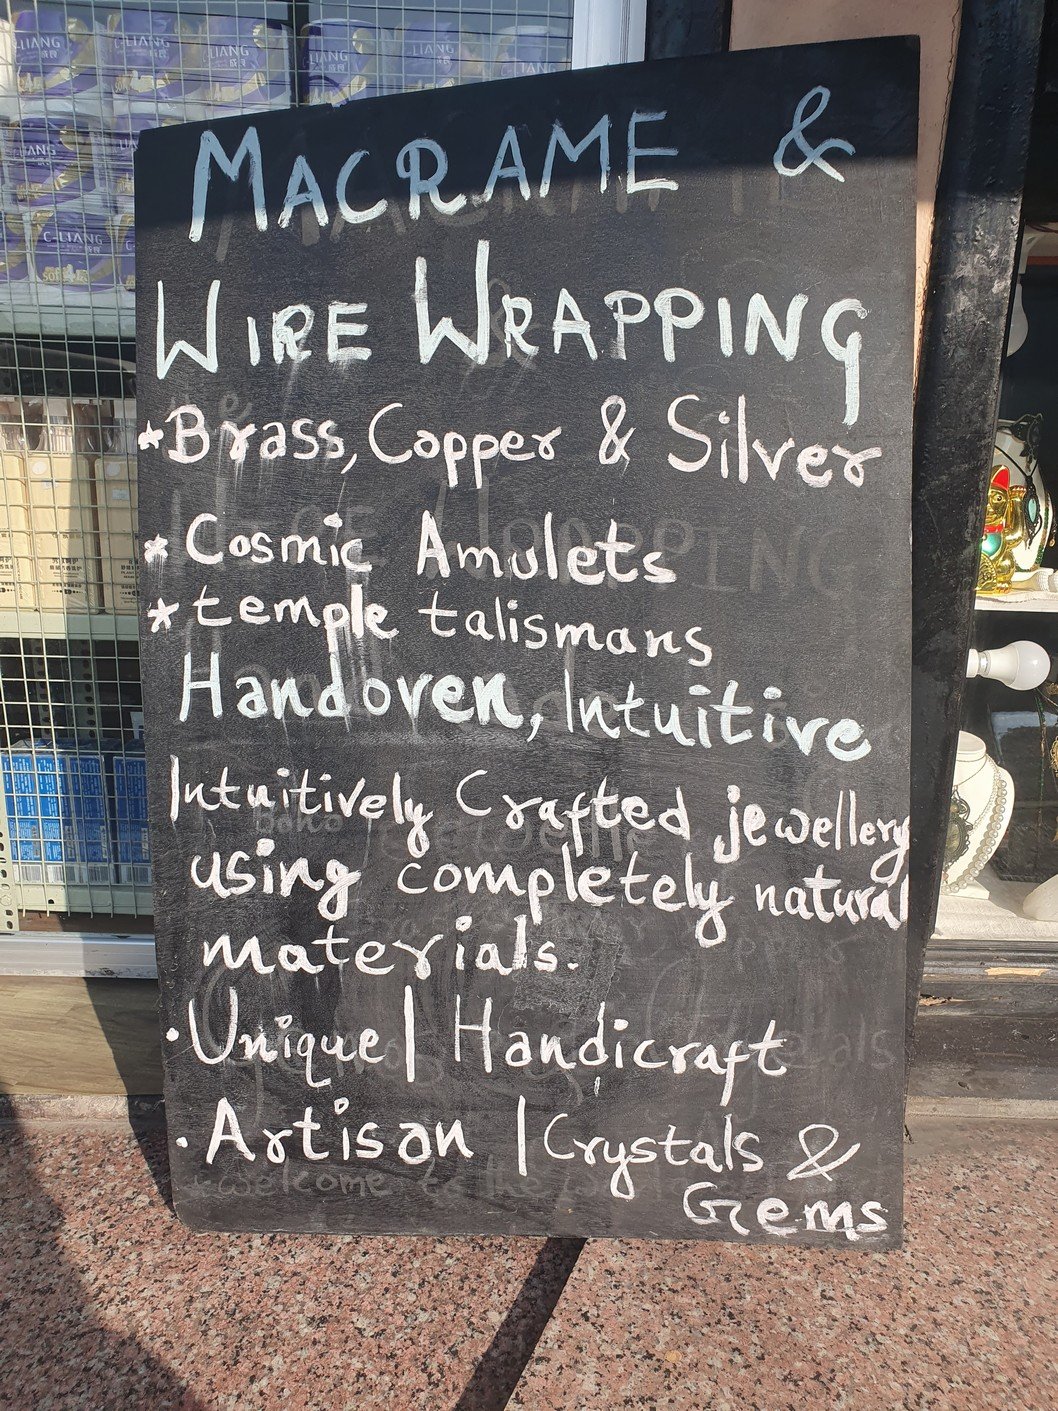 MACRAME &
WIRE WRAPPING
* Brass, Copper & Silver
* Cosmic Amulets
* temple talismans
Handoven, Intuitive
Intuitively Crafted jewellery
using completely natural
materials.
. Unique | Handicraft
. Artisan | Crystals &
Gems
C-LIANG